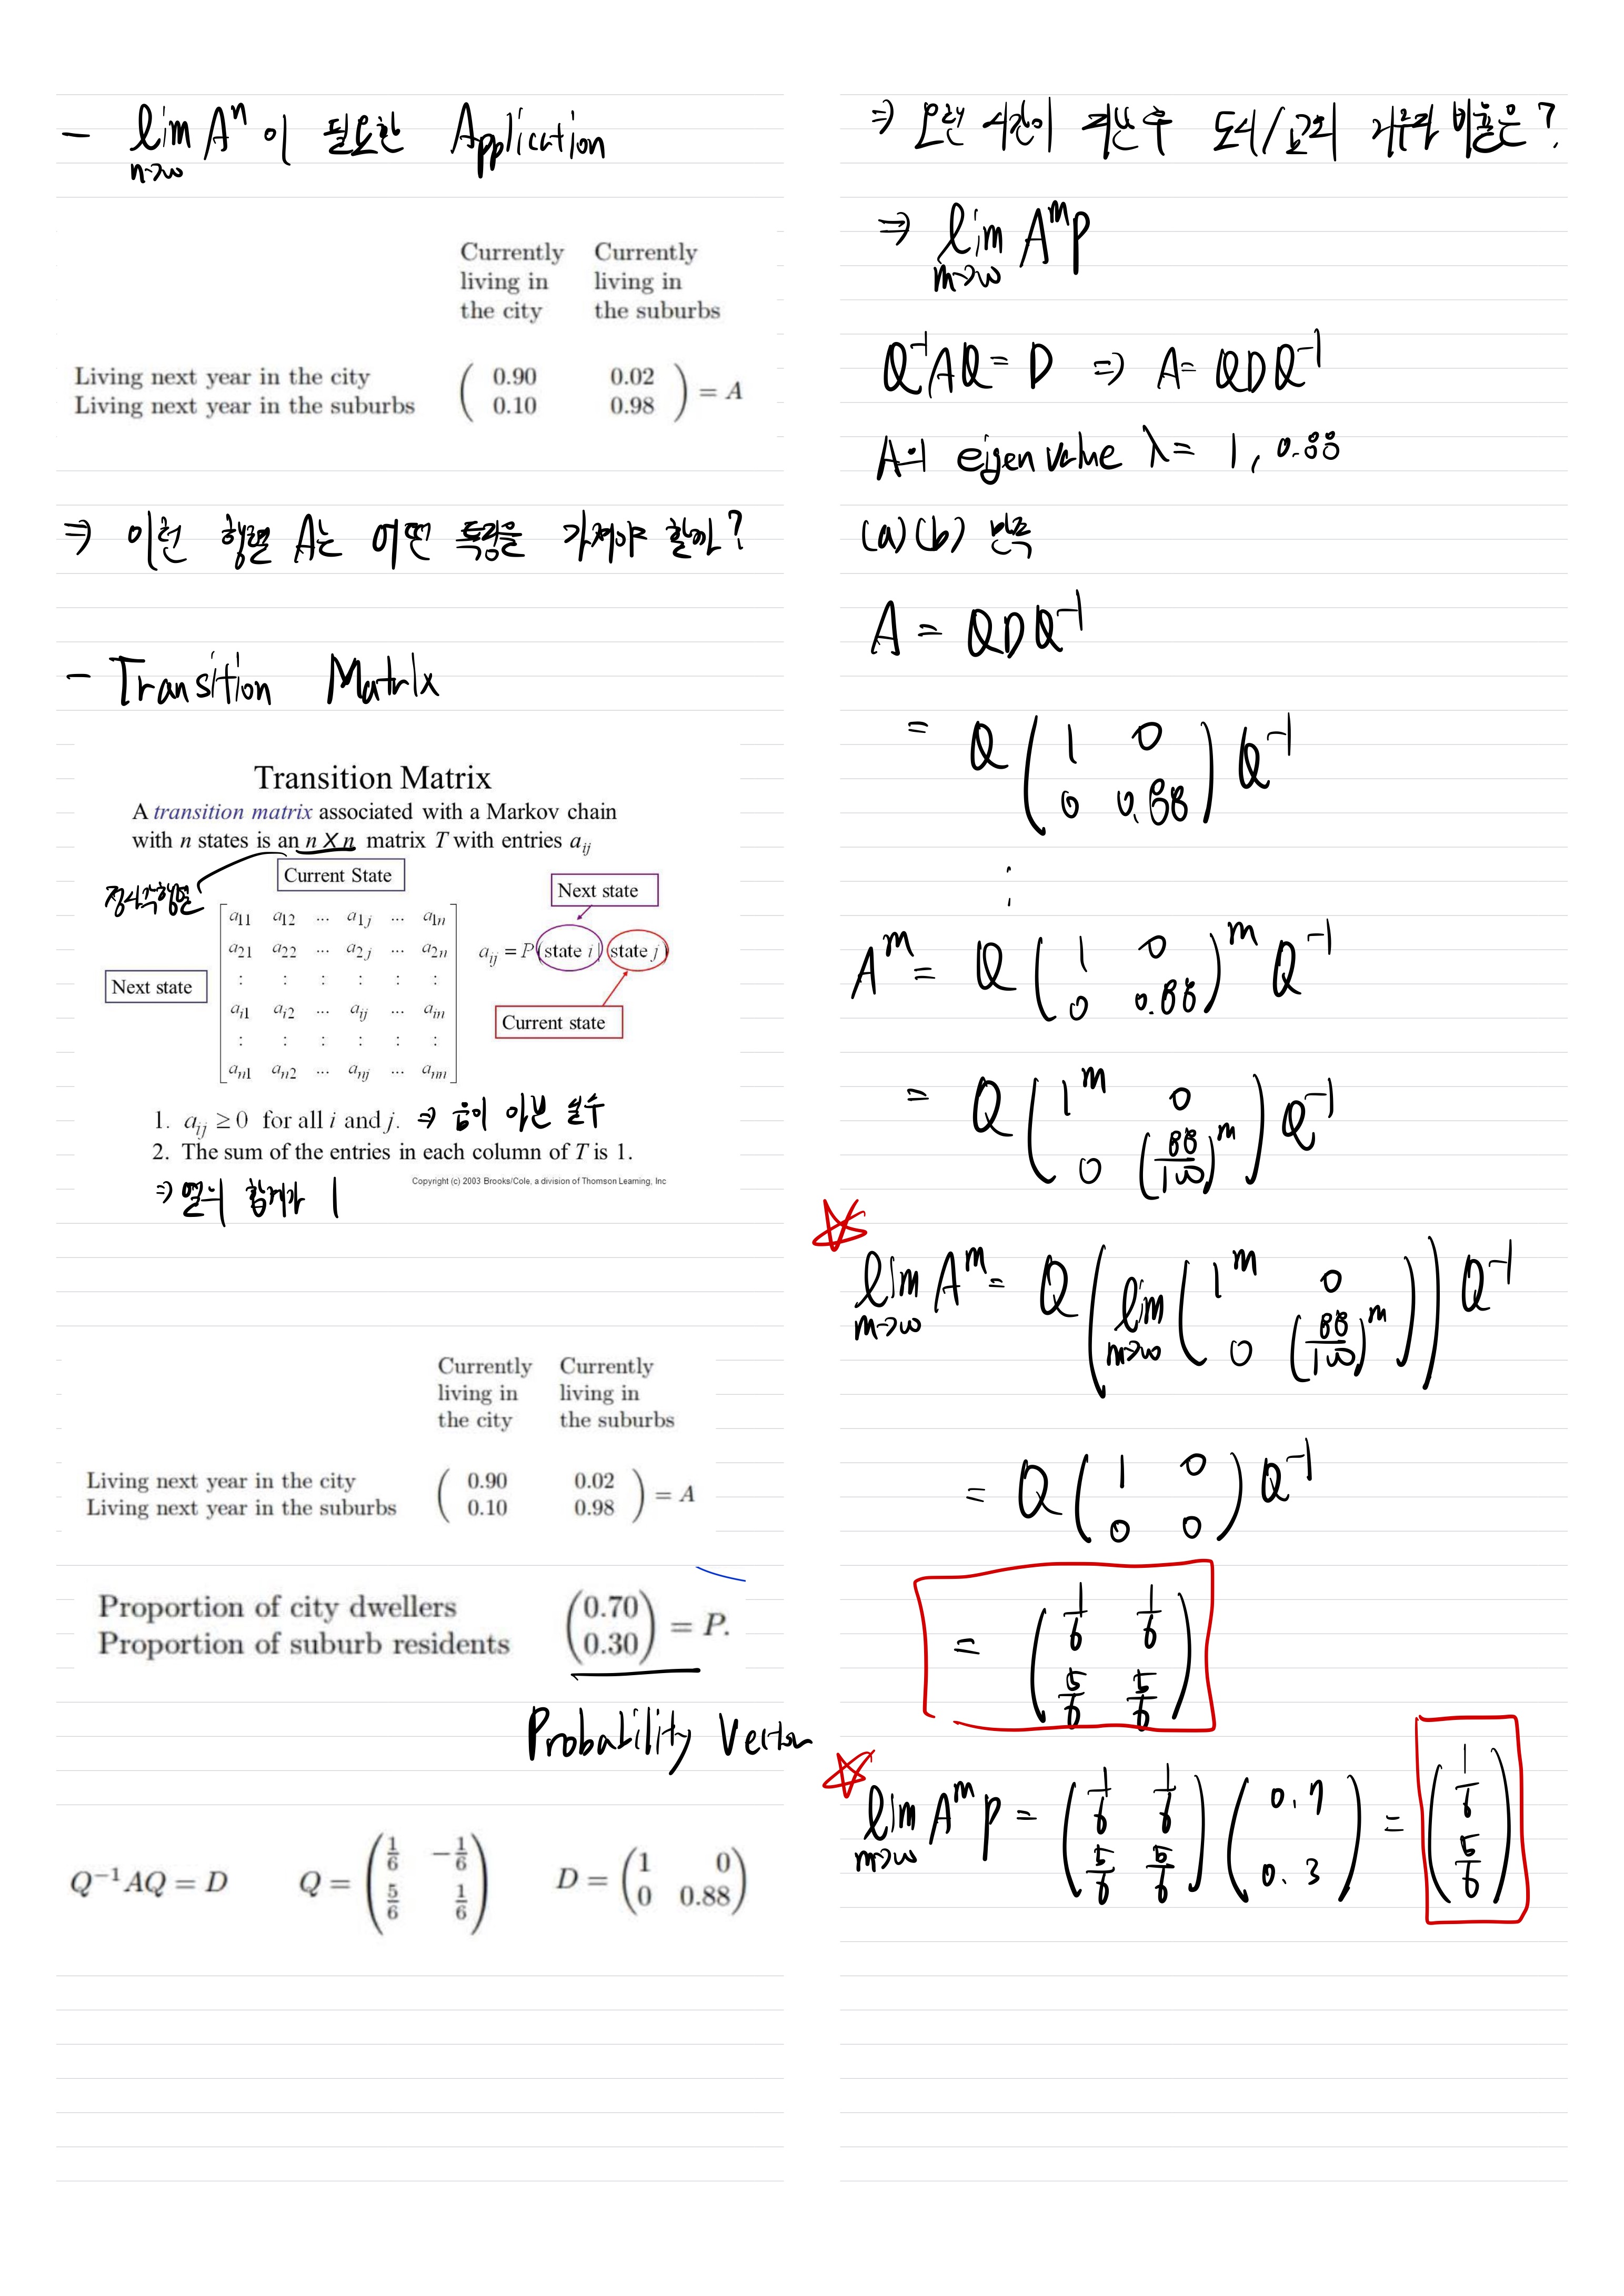 - lim n→∞ Aⁿ 이 필요한 Application
Currently living in the city
Currently living in the suburbs
Living next year in the city ( 0.90 0.02 )
Living next year in the suburbs ( 0.10 0.98 ) = A
⇒ 이런 행렬 A는 어떤 특징을 가져야 할까?
- Transition Matrix
Transition Matrix
A transition matrix associated with a Markov chain
with n states is an n X n matrix T with entries aij
정사각행렬
Current State
Next state
a11 a12 ... a1j ... a1n
a21 a22 ... a2j ... a2n
: : : : : :
ai1 ai2 ... aij ... ain
: : : : : :
an1 an2 ... anj ... ann
Next state
aij = P(state i | state j)
Current state
1. aij ≥ 0 for all i and j. ⇒ 음이 아닌 실수
2. The sum of the entries in each column of T is 1.
⇒ 열의 합계가 1
Copyright (c) 2003 Brooks/Cole, a division of Thomson Learning, Inc
Currently living in the city
Currently living in the suburbs
Living next year in the city ( 0.90 0.02 )
Living next year in the suburbs ( 0.10 0.98 ) = A
Proportion of city dwellers (0.70)
Proportion of suburb residents (0.30) = P.
Probability Vector
Q⁻¹AQ = D Q = (1/6 -1/6; 5/6 1/6) D = (1 0; 0 0.88)
⇒ 오랜 시간이 지난 후 도시/교외 거주자 비율은?
⇒ lim m→∞ Aᵐp
Q⁻¹AQ = D ⇒ A = QDQ⁻¹
A의 eigenvalue λ = 1, 0.88
(a)(b) 만족
A = QDQ⁻¹
= Q (1 0; 0 0.88) Q⁻¹
⋮
Aᵐ = Q (1 0; 0 0.88)ᵐ Q⁻¹
= Q (1ᵐ 0; 0 (88/100)ᵐ) Q⁻¹
☆ lim m→∞ Aᵐ = Q (lim m→∞ (1ᵐ 0; 0 (88/100)ᵐ)) Q⁻¹
= Q (1 0; 0 0) Q⁻¹
= (1/6 1/6; 5/6 5/6)
☆ lim m→∞ Aᵐp = (1/6 1/6; 5/6 5/6) (0.7; 0.3) = (1/6; 5/6)